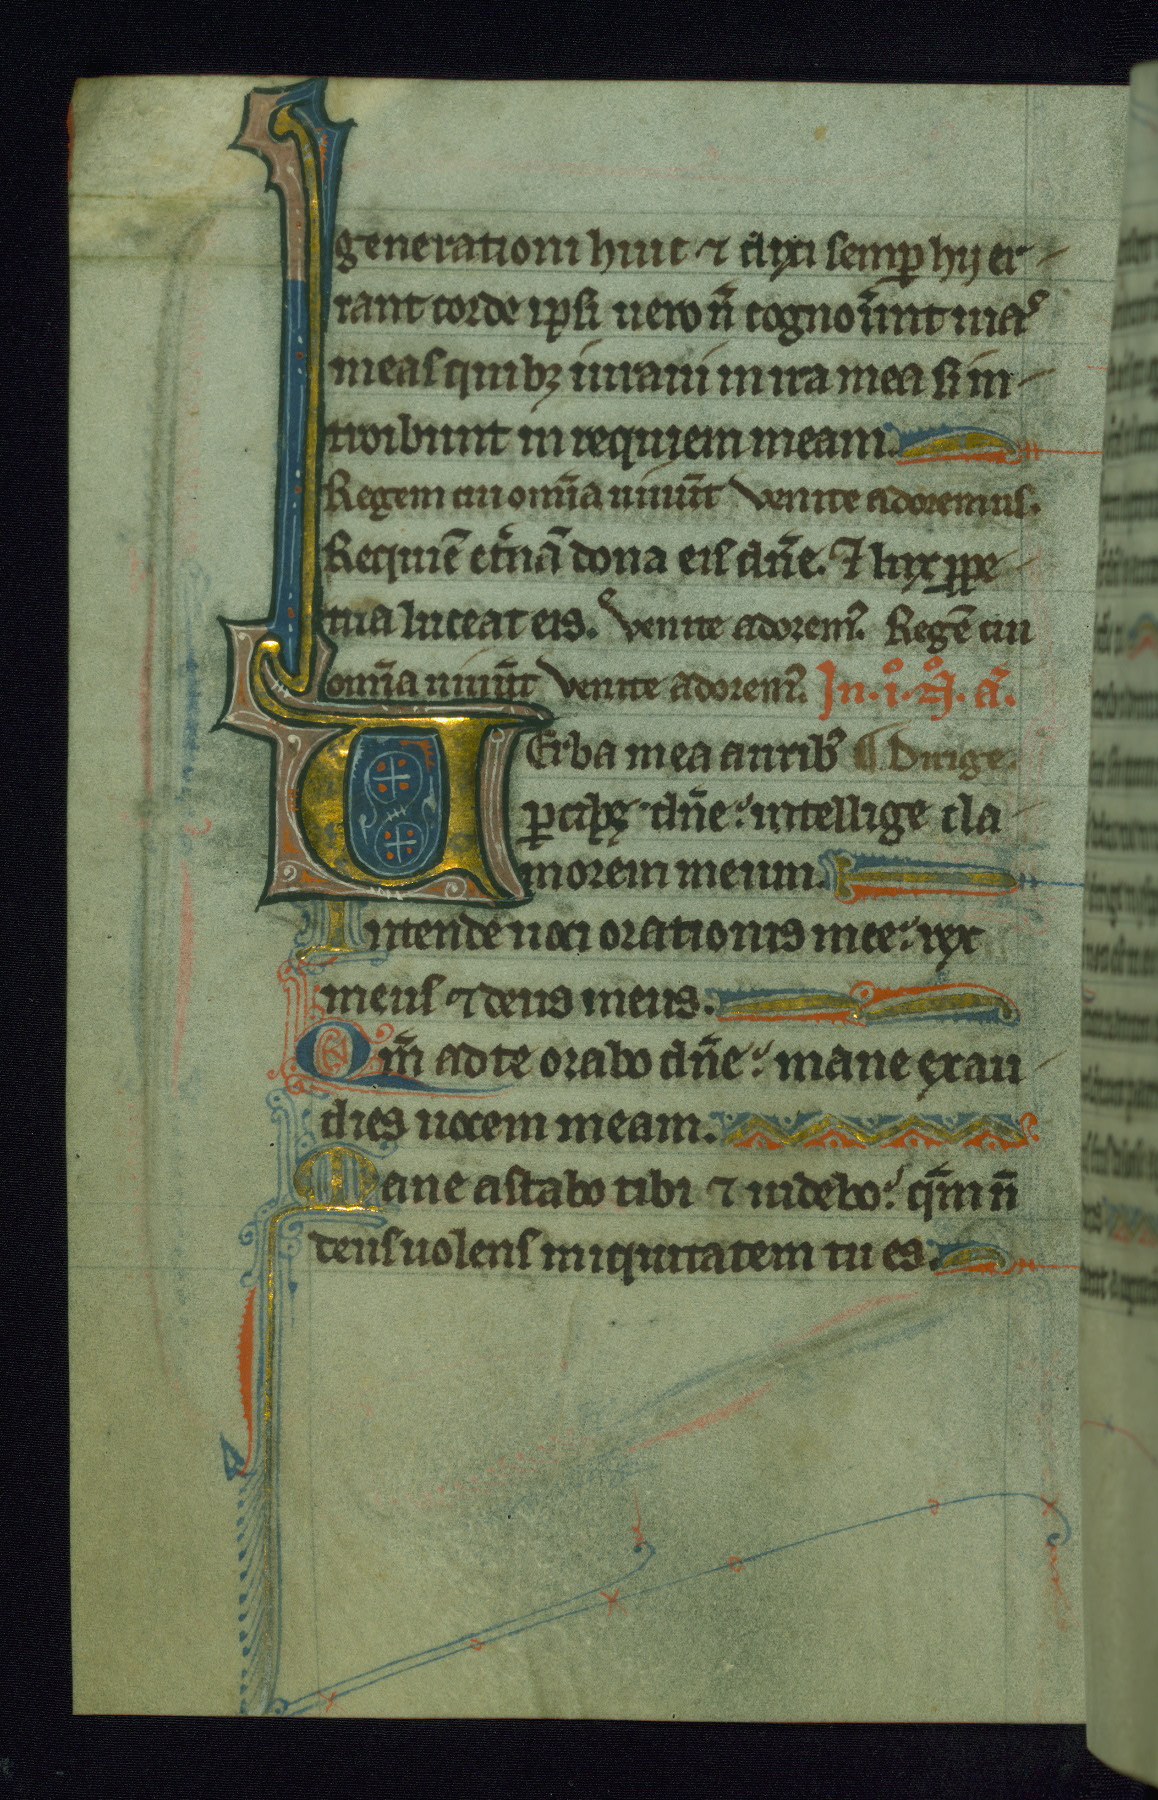 generationi huic ⁊ dixi semp hij er
rant corde ipsi uero ñ cogno̅unt uias
meas quibꝫ iuraui in ira mea si in
troibunt in requiem meam.
Regem cui om̄ia uiuūt Venite adoremus.
Requiē et̓nā dona eis dn̄e. Et lux ꝑpe
tua luceat eis. Venite adorem᾽. Regē cui
om̄ia uiuūt Venite adorem᾽. In .i. N. a̅.
Verba mea aurib᾽ ¶ Dirige.
ꝑcipe dn̄e: intellige cla
morem meum.
Intende uoci orationis mee: rex
meus ⁊ deus meus.
Qm̄ ad te orabo dn̄e: mane exau
dies uocem meam.
Mane astabo tibi ⁊ uidebo: qm̄ n̄
deus uolens iniquitatem tu es.